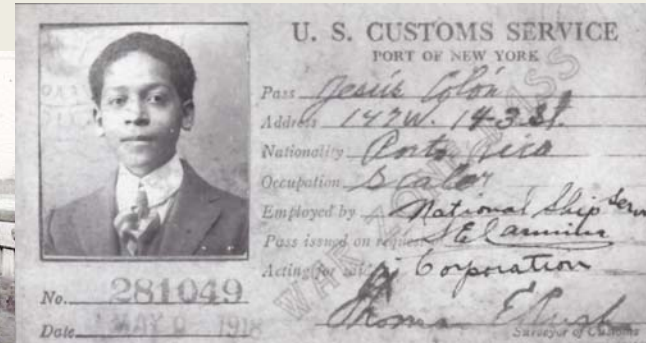 U. S. CUSTOMS SERVICE
PORT OF NEW YORK
Pass Jesús Colón
Address 147 W. 143 St.
Nationality Porto Rico
Occupation Scaler
Employed by National Ship Serv
Pass issued on request
Acting for said Corporation
WAR ZONE PASS
No. 281049
Thomas E Rush
Date MAY 1918
Surveyor of Customs